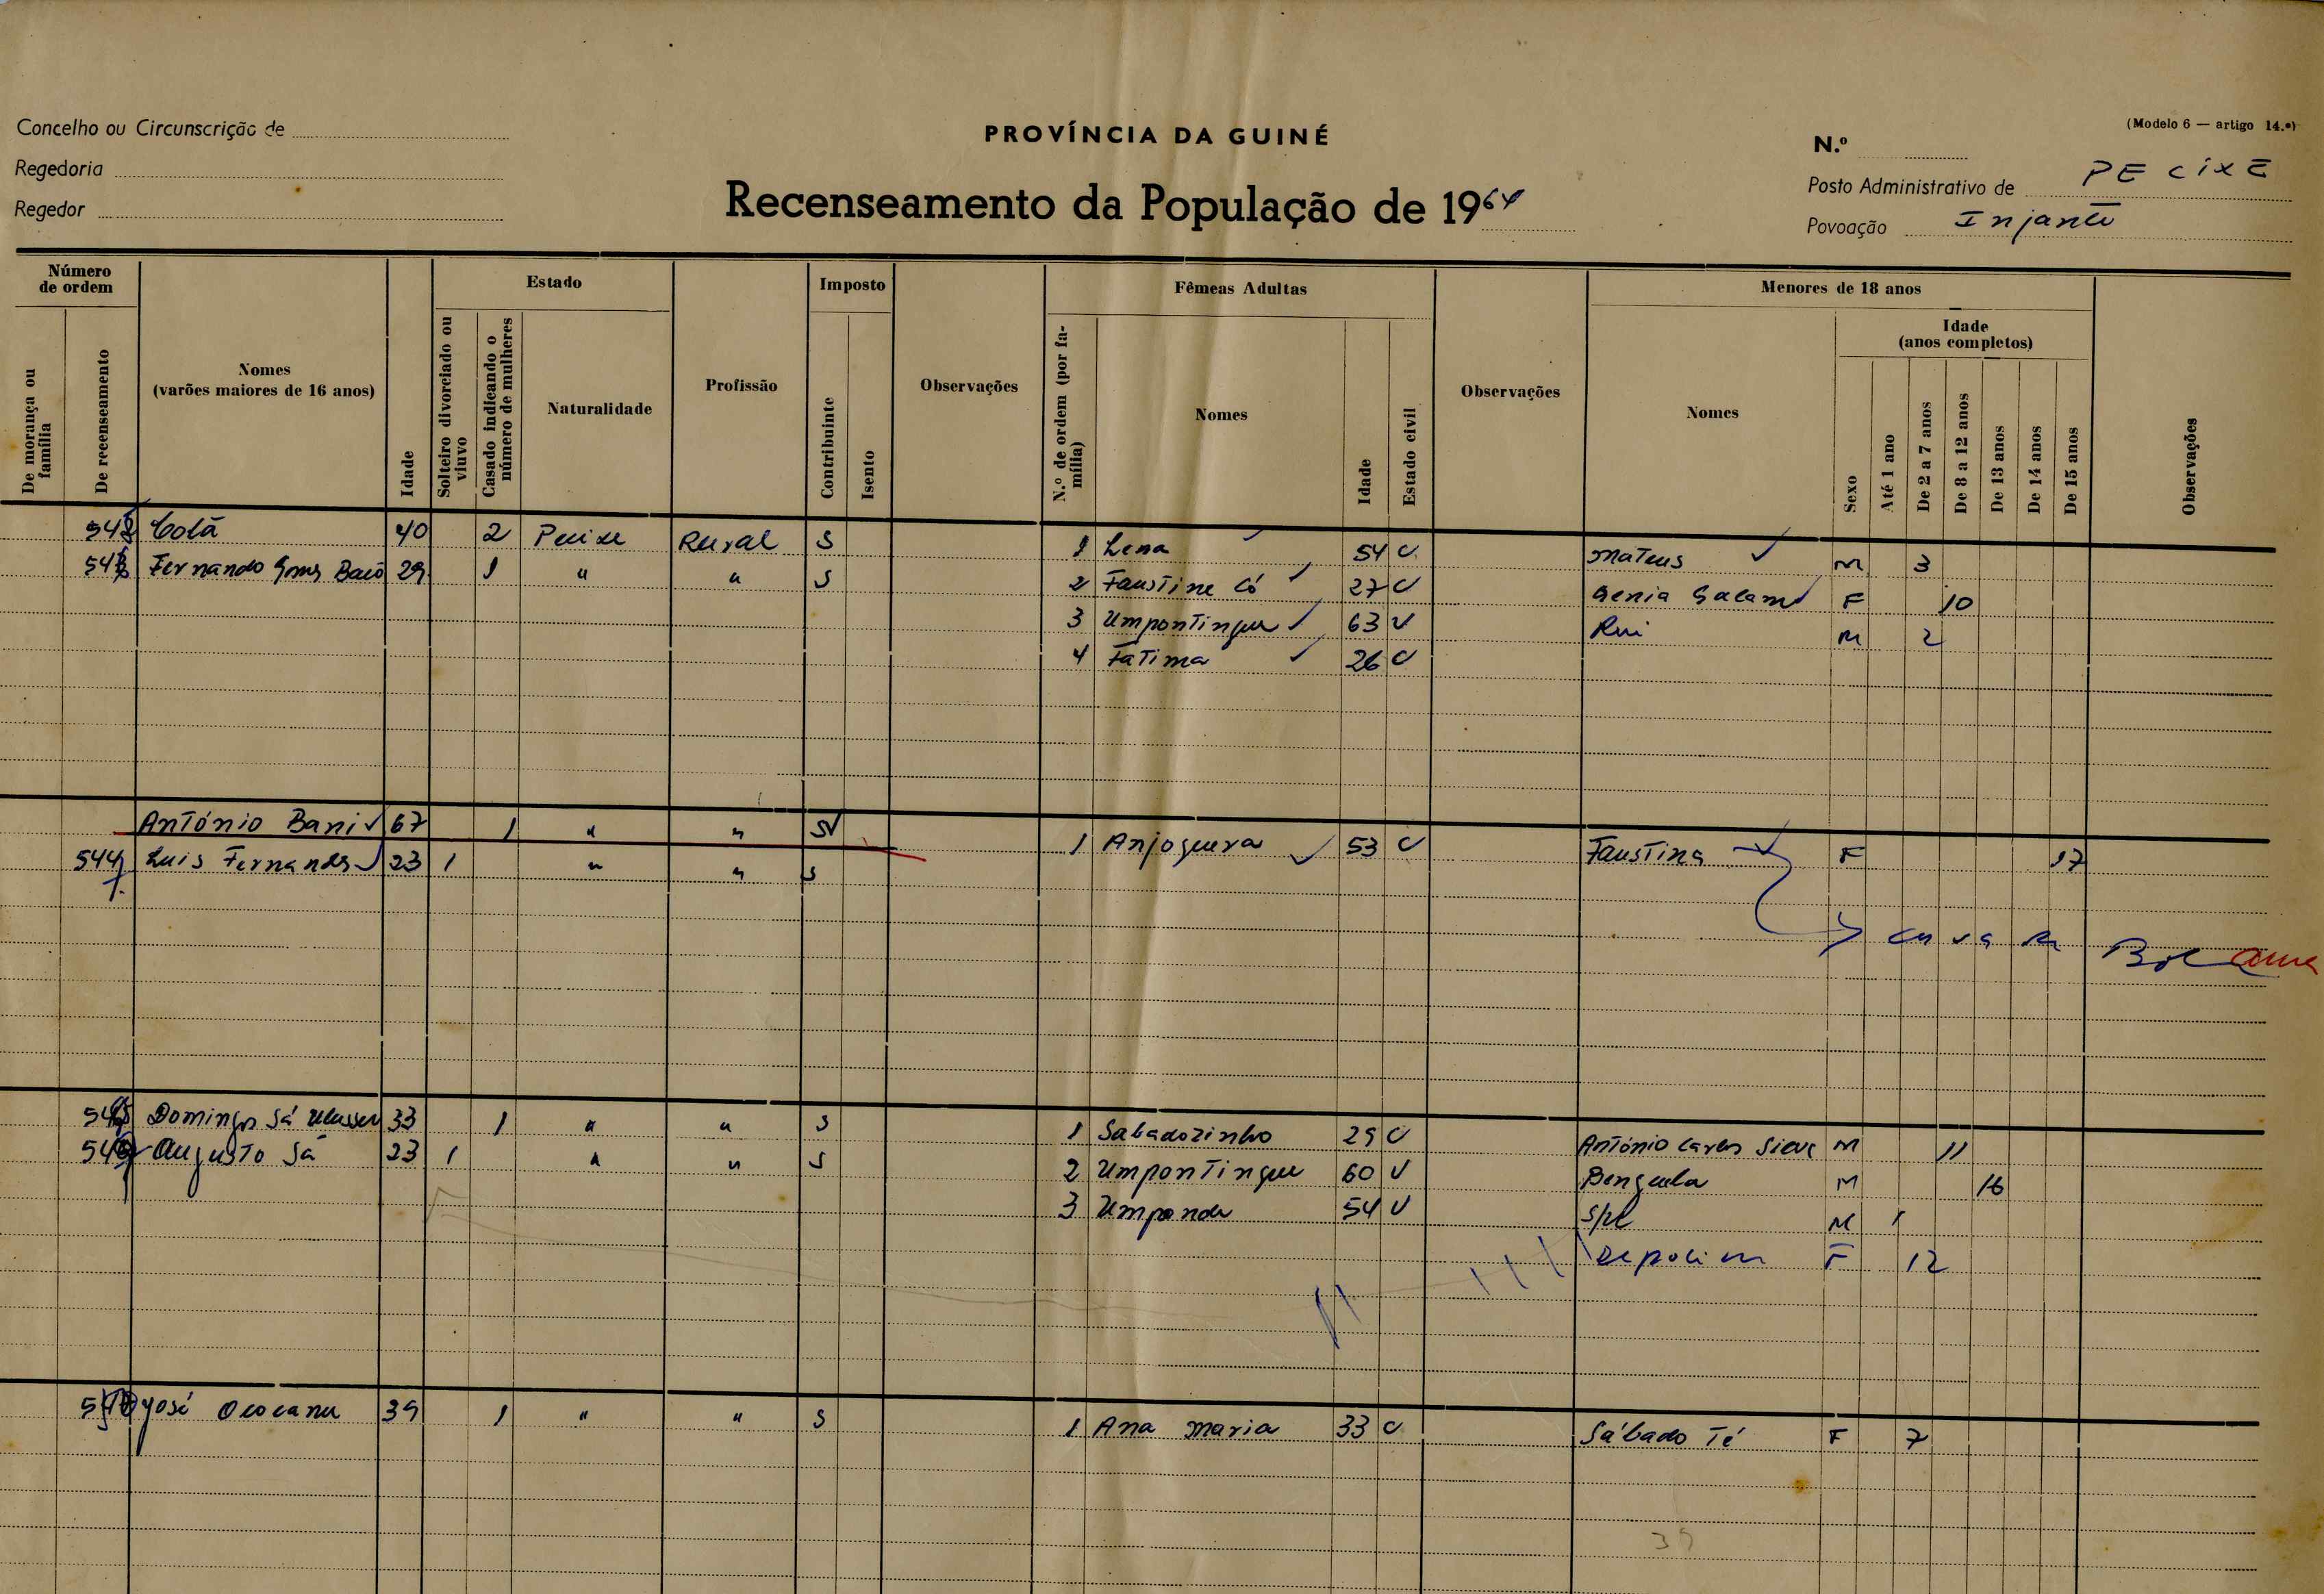 (Modelo 6 — artigo 14.º)
Concelho ou Circunscrição de
PROVÍNCIA DA GUINÉ
N.º
Regedoria
Posto Administrativo de PECIXE
Regedor
Recenseamento da População de 1964
Povoação Injante
Número de ordem
Estado
Imposto
Fêmeas Adultas
Menores de 18 anos
De morança ou família
De recenseamento
Nomes (varões maiores de 16 anos)
Idade
Solteiro divorciado ou viuvo
Casado indicando o número de mulheres
Naturalidade
Profissão
Contribuinte
Isento
Observações
N.º de ordem (por família)
Nomes
Idade
Estado civil
Observações
Nomes
Sexo
Idade (anos completos)
Até 1 ano
De 2 a 7 anos
De 8 a 12 anos
De 13 anos
De 14 anos
De 15 anos
Observações
Cotà 40 2 Peixe Rural S 1 Lena 54 C Mateus M 3
Fernando Gomes 29 1 " " S 2 Faustine Có 27 C Genia F 10
3 Umpontingue 63 V Rui M 2
4 Fatima 26 C
António Bani 67 1 " " S 1 Anjoguera 53 C Faustina F 17
544 Luis Fernandes 23 1 " " S
Bolama
Domingos Sá 33 1 " " S 1 Sabadozinho 29 C António Carlos M 11
Augusto Sá 23 1 " " S 2 Umpontingue 60 V Benguela M 16
3 Umpande 54 V M 1
F 12
José Ococanu 39 1 " " S 1 Ana Maria 33 C Sábado Té F 7
39